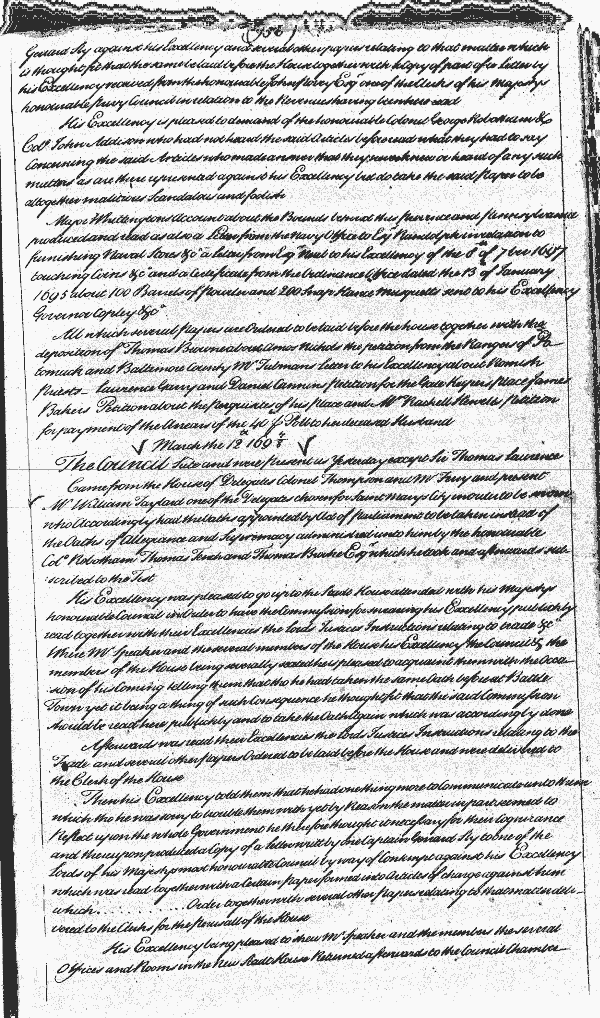 Gerrard Sly against his Excellency and several other papers relating to that matter which
is thought fit that the same be laid before the House together with a Copy of part of a Letter by
his Excellency received from the honourable John Povey Esqr one of the Clerks of his Majestys
honourable Privy Council in relation to the Revenue having been here read
His Excellency is pleased to demand of the honourable Colonel George Robotham &
Coll John Addison who had not heard the said Articles before read what they had to say
Concerning the said Articles who made answer that they never knew or heard of any such
matters as are there expressed against his Excellency but do take the said Paper to be
altogether malitious Scandalous and foolish
Major Whittingtons Account about the Bounds betwixt this province and Pennsylvania
produced and read as also a Letter from the Navy Office to Esqr Randolph in relation to
furnishing Naval Stores &ca a Letter from Esqr to his Excellency of the of 7ber 1697
touching Coins &ca and a Certificate from the Ordinance Office dated the 13 of January
1695 about 100 Barrels of powder and 200 Snap hance musquetts sent to his Excellency
Governor Copley &ca
All which several Papers are Ordered to be laid before the house together with the
deposition of Thomas Browne about Amos Nichols the petition from the Rangers of Po-
tomuch and Baltimore County Mr Letter to his Excellency about Romish
Priests Laurence Garry and Daniel petition for the Gate Keepers place James
Bakers Petition about the perquisites of his place and Mrs Rachell petition
for payment of the Arrears of the 40 Poll to her deceased Husband
March the 12th 169
The Council Sate and were Present as Yesterday except Sir Thomas Laurence
Came from the House of Delegates Colonel Thompson and Mr Frey and present
Mr William Taylard one of the Delegates chosen for Saint Marys City in order to be sworn
who Accordingly had the Oaths appointed by Act of Parliament to be taken instead of
the Oaths of Allegiance and Supremacy administred unto him by the honourable
Coll Robotham Thomas Tench and Thomas Brooke Esqrs which he took and afterwards sub-
scribed to the Test
His Excellency was pleased to go up to the Stadt House attended with his Majestys
honourable Council in Order to have the Commission for swearing his Excellency publickly
read together with their Excellencies the Lords Justices Instructions relating to trade &ca
Where Mr Speaker and the several members of the House his Excellency the Council & the
members of the House being severally seated he is pleased to acquaint them with the Occa-
sion of his Coming telling them that tho he had taken the same Oath before at Battle
Town yet it being a thing of such Consequence he thought fit that the said Commission
should be read here publickly and to take the Oath again which was accordingly done
Afterwards was read their Excellencies the Lords Justices Instructions relating to the
Trade and several other papers Ordered to be laid before the House and were delivered to
the Clerk of the House
Then his Excellency told them that he had one thing more to Communicate unto them
which tho he was sorry to trouble them with yet by Reason the matter in part seemed to
Reflect upon the whole Government he therefore thought it necessary for their Cognizance
and thereupon produced a Copy of a Letter writt by one Captain Gerrard Sly to one of the
Lords of his Majestys most honourable Council by way of Complaint against his Excellency
which was read together with a Certain Paper formed into Articles of Charge against him
which . . . . . . . . . Order together with several other Papers relating to that matter deli-
vered to the Clerks for the perusall of the House
His Excellency being pleased to shew Mr Speaker and the members the several
Offices and Rooms in the New Stadt House Returned afterwards to the Council Chamber